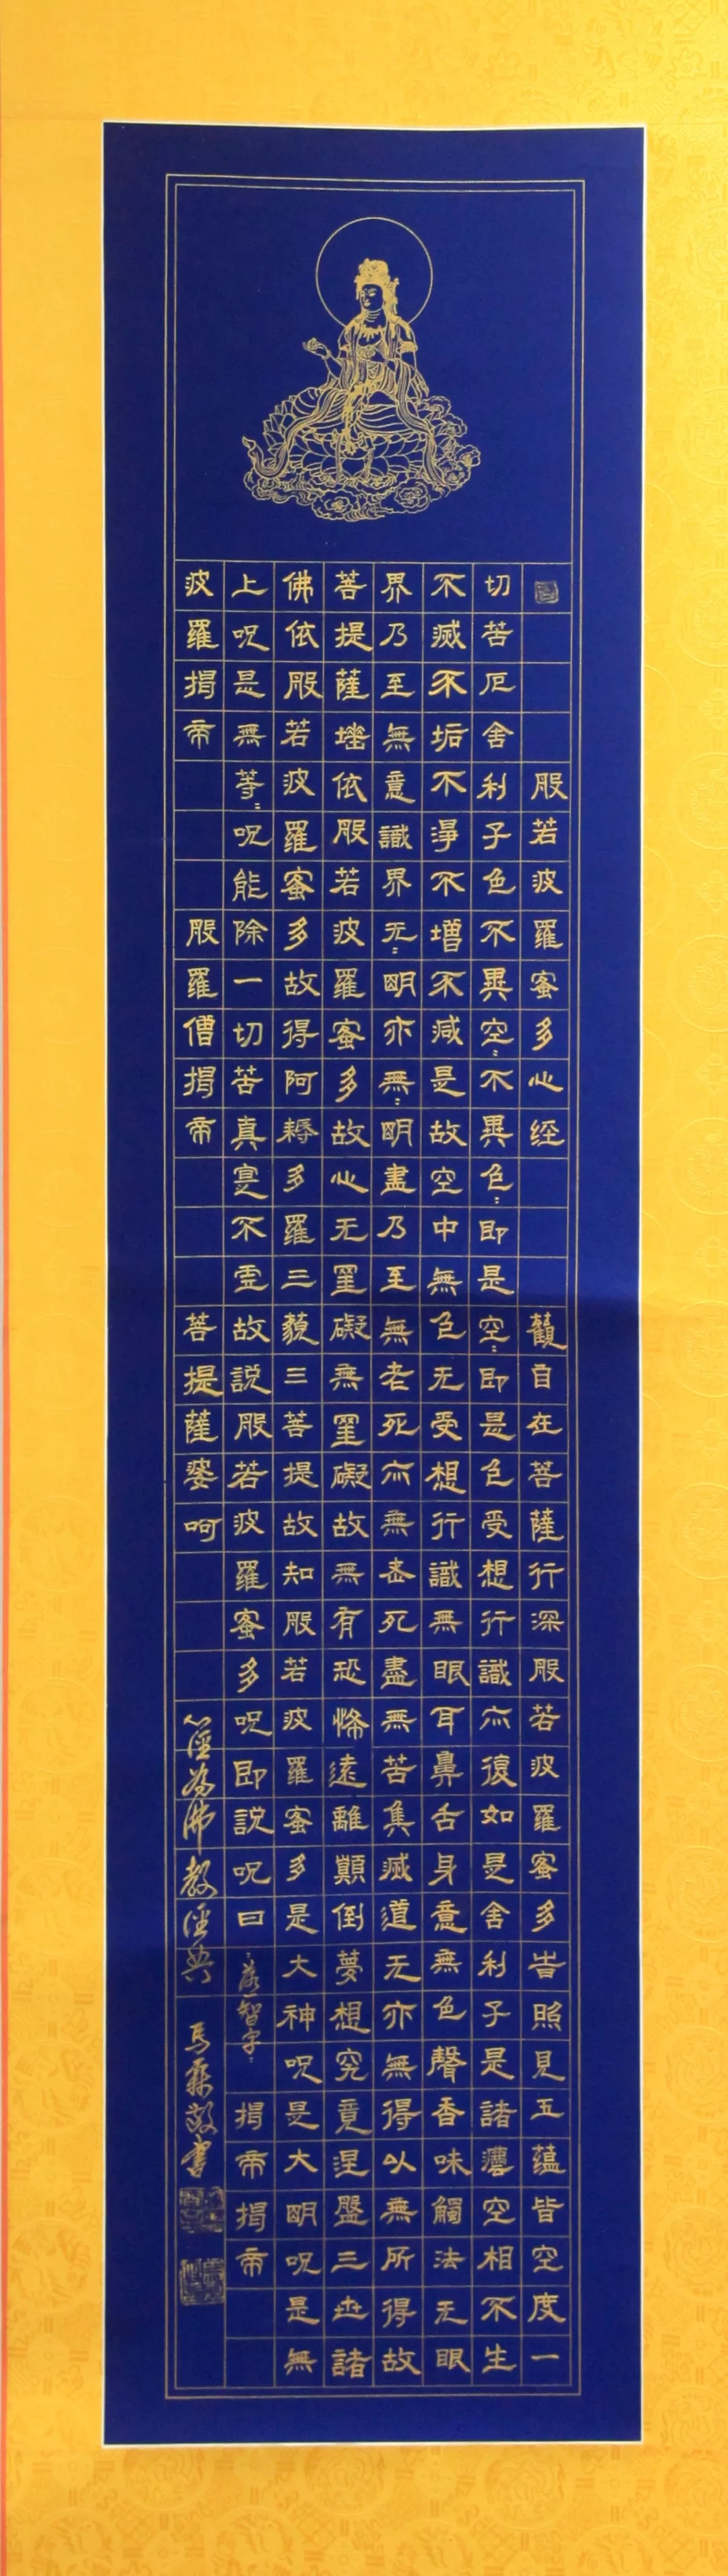 般若波羅蜜多心经 觀自在菩薩行深般若波羅蜜多旹照見五蘊皆空度一
切苦厄舍利子色不異空〻不異色〻即是空〻即是色受想行識亦復如是舍利子是諸灋空相不生
不滅不垢不淨不增不減是故空中無色无受想行識無眼耳鼻舌身意無色聲香味觸法无眼
界乃至無意識界无〻明亦無〻明盡乃至無老死亦無老死盡無苦集滅道无亦無得以無所得故
菩提薩埵依般若波羅蜜多故心无罣礙無罣礙故無有恐怖遠離顛倒夢想究竟涅盤三世諸
佛依般若波羅蜜多故得阿耨多羅三藐三菩提故知般若波羅蜜多是大神呪是大明呪是無
上呪是無等〻呪能除一切苦真寔不虛故説般若波羅蜜多呪即説呪曰 落一智字 揭帝揭帝
波羅揭帝 般羅僧揭帝 菩提薩婆呵 心經為佛教經典 馬霖敬書